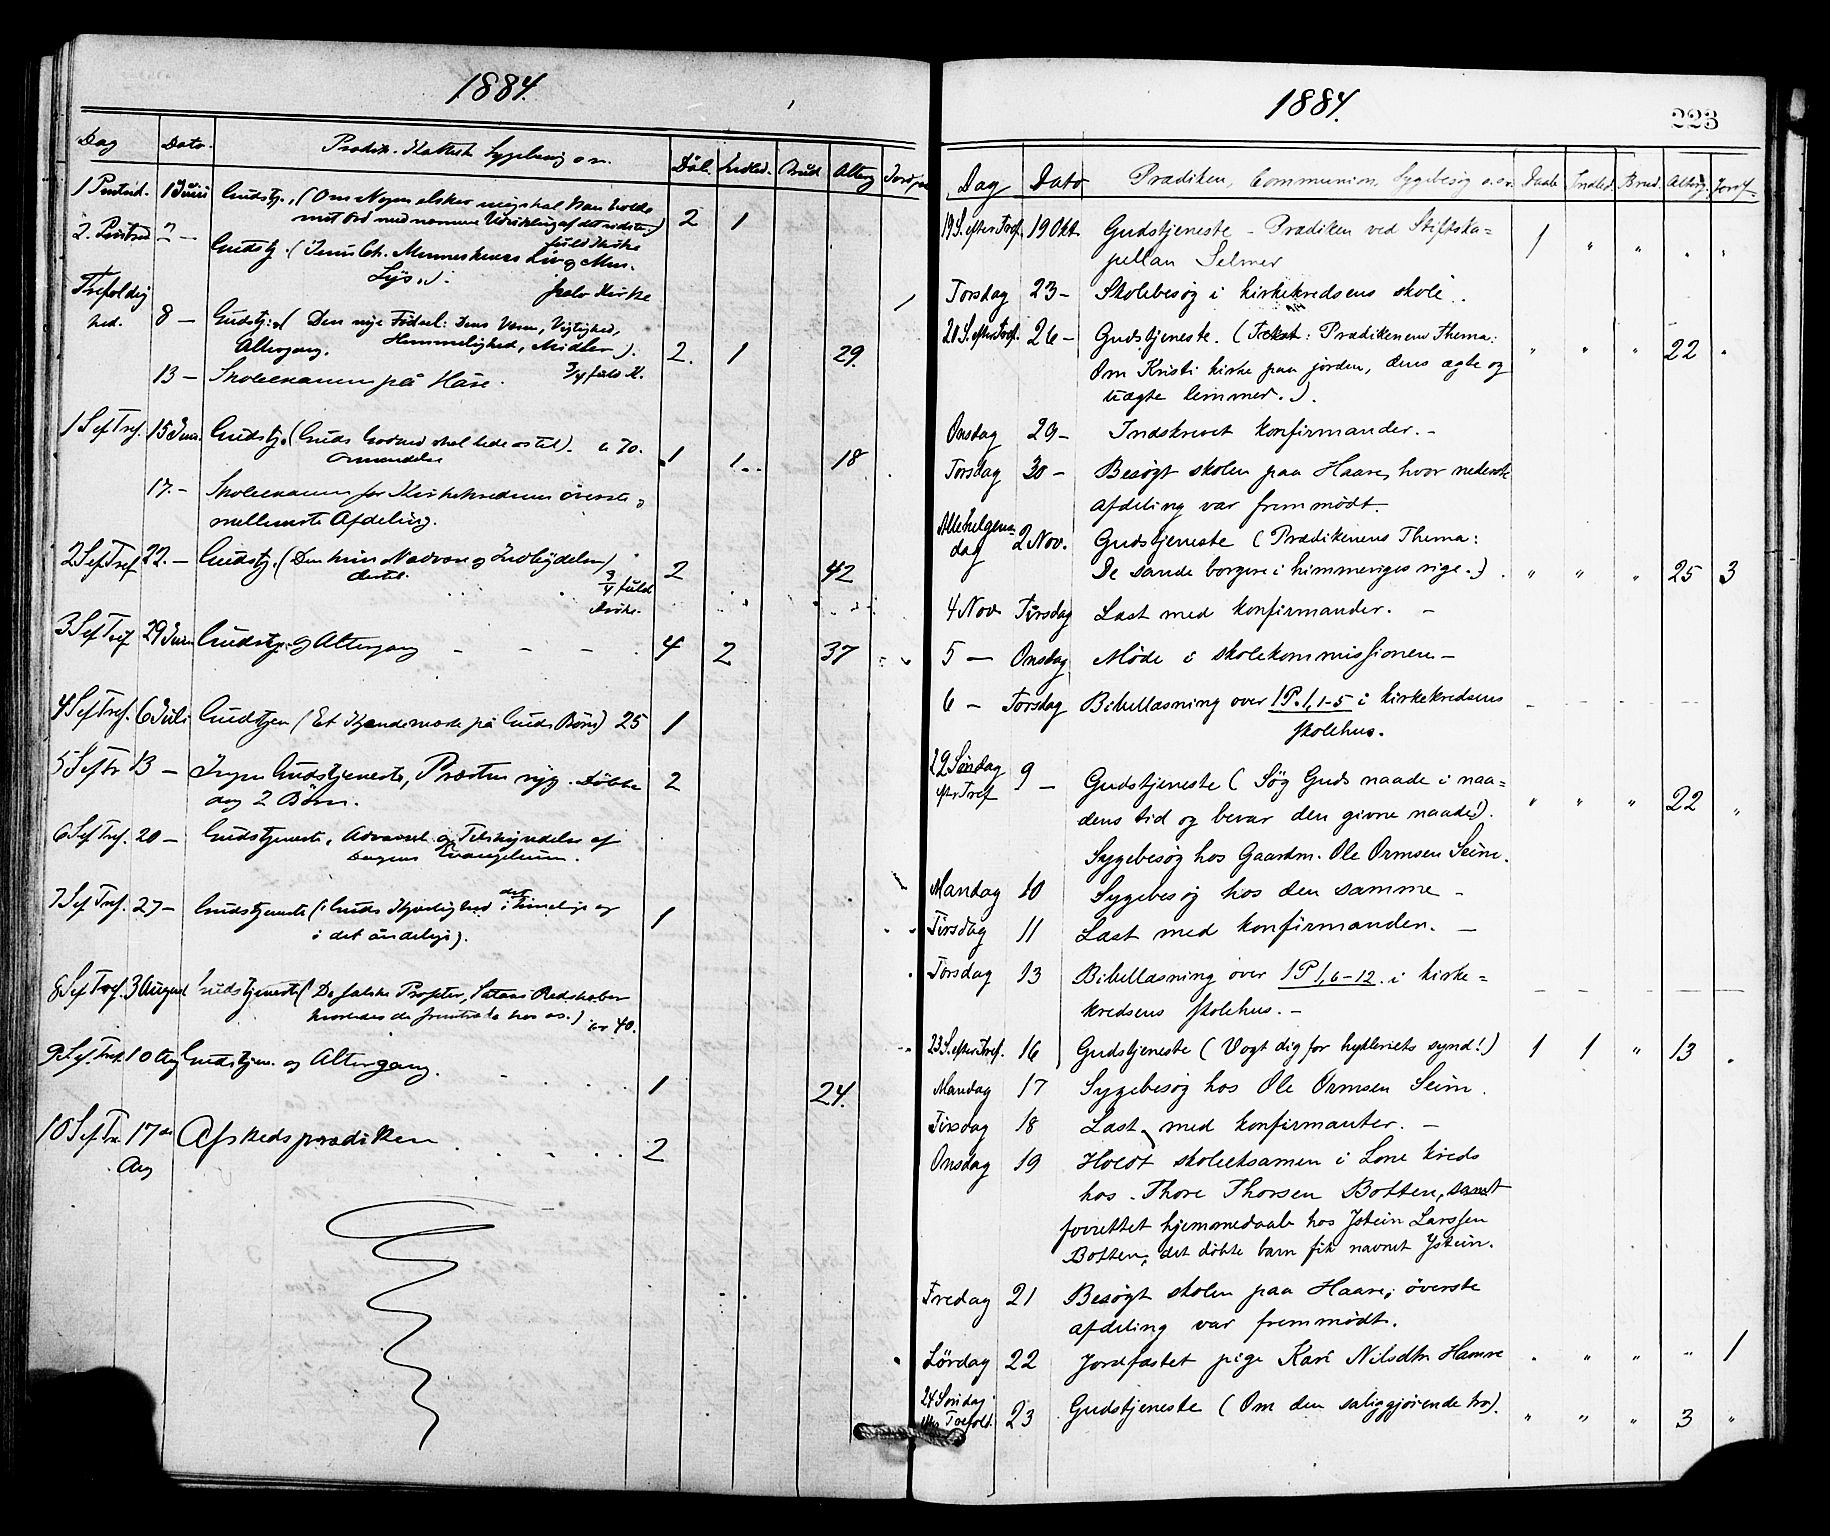 1884.
Dag Dato. Prædik. Kattek. Sygebesøg o.s. Döb. Indled. Brud. Alterg. Jordp.
1 Pintsed. 1 Juni Gudstj. (Om Nogen elsker mig skal han holde
mit Ord med nermere Udvikling af det sidste) 2 1
fuld Kirke
2. Pintsed. 2 — Gudstj. (Jesus Ch. Menneskenes Liv og Men.
Lys.).
halv Kirke 1
Trefoldig
hed. 8 — Gudstj. (Den nye Fødsel: Dens Væsen, Vigtighed,
Altergang. Hemmelighed, Midler). 2. 1 29.
3/4 fuld K.
13 — Skoleexamen på Håre.
1 S ef Tref. 15 Juni. Gudstj. (Guds Godhed skal lede os til). c 70. 1 1 18
Omvendelse
17. — Skoleexamen for Kirkekredsens överste og
mellemste Afdeling.
2 S ef Tref 22. — Gudstj. (Den himm Nadvere og Indbydelsen 2 42
dertil. 3/4 fuld
Kirke.
3 S ef Tref 29 Juni Gudstj. og Altergang — — — 4 2 37
4 S ef Tref. 6 Juli Gudstjen (Et Kjendemærke på Guds Börn) 25 1
5 S ef Tr 13 — Ingen Gudstjeneste, Præsten syg. Döbte 2
dog 2 Börn.
6 S ef Tref. 20 — Gudstjeneste, Advarsel og Tilskyndelse af
Dagens Evangelium.
7 S ef Tref. 27 — Gudstjeneste (Guds Kjærlighed i det timelige og 1
i det åndelige).
8 S ef Tref. 3 August Gudstjeneste (De falske Profeter, Satans Redskaber
hvorledes de fremtræde hos os.) ca 40.
9 S ef Tref. 10 Aug Gudstjen. og Altergang. 1 24.
10 S ef Tr 17de Afskedsprædiken 2
Aug
1884. 223
Dag Dato Prædiken, Communion, Sygebesøg o.s.v. Daab Indled. Brud. Alterg. Jordf.
19 S. efter Tref. 19 Okt Gudstjeneste - Prædiken ved Stiftska= 1 " " " "
pellan Selmer
Torsdag 23 — Skolebesøg i kirkekredsens skole.
20 S. efter Tref. 26 — Gudstjeneste. (Tekst: Prædikenens Thema: " " " 22 "
Om Kristi kirke paa jorden, dens ægte og
uægte lemmer.).
Onsdag 29 — Indskrevet konfirmander. —
Torsdag 30 — Besøgt skolen paa Haare, hvor nederste
afdeling var fremmödt.
Allehelgens
dag 2 Nov. Gudstjeneste (Prædikenens Thema:
De sande borgere i himmeriges rige.) " " " 25 3
4 Nov. Tirsdag Læst med konfirmander. —
5 — Onsdag Møde i skolekommissionen —
6 — Torsdag Bibellæsning over 1 P. 1, 1-5 i kirkekredsens
skolehus.
22 Søndag
efter Tref 9 — Gudstjeneste (Søg Guds naade i naa= " " " 22 "
dens tid og bevar den givne naade!).
Sygebesøg hos Gaardm. Ole Ormsen Seim.
Mandag 10 Sygebesøg hos den samme —
Tirsdag 11 Læst med konfirmanden. —
Torsdag 13 Bibellæsning over 1 P 1, 6-12. i kirke=
kredsens skolehus. —
23 S. efter Tref. 16 Gudstjeneste (Vogt dig for hykleriets synd!) 1 1 " 13 "
Mandag 17 Sygebesøg hos Ole Ormsen Seim.
Tirsdag 18 Læst med konfirmanter. —
Onsdag 19 Holdt skoleeksamen i Lone kreds
hos Thore Thorsen Botten, samt
forrettet hjemmedaab hos Jstein Larssen
Botten; det døbte barn fik navnet Jstein.
Fredag 21 Besøgt skolen paa Haare; överste
afdeling var fremmödt.
Lördag 22 Jordfæstet pige Kari Nilsdtr Hamre " " " " 1
24 Søndag
efter Trefolt. 23 Gudstjeneste (Om den saliggjørende tro). " " " 3 "